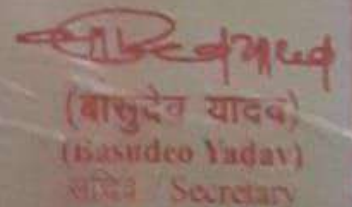 (बासुदेव यादव)
(Basudeo Yadav)
सचिव Secretary